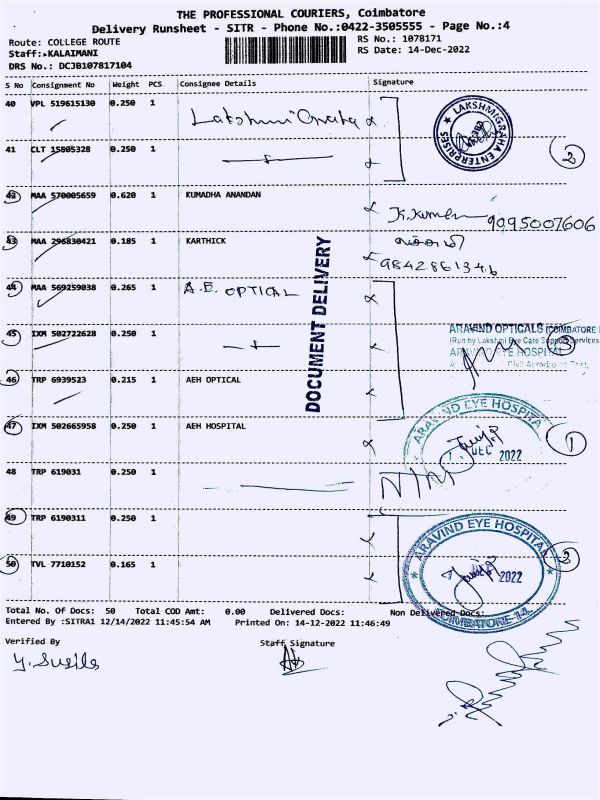 THE PROFESSIONAL COURIERS, Coimbatore
Delivery Runsheet - SITR - Phone No.:0422-3505555 - Page No.:4
Route: COLLEGE ROUTE
RS No.: 1078171
Staff:-KALAIMANI
RS Date: 14-Dec-2022
DRS No.: DCJB107817104
S No Consignment No Weight PCS Consignee Details Signature
40 VPL 519615130 0.250 1
LAKSHMIGRAHA ENTERPRISES
41 CLT 15505328 0.250 1
2
42 MAA 570005659 0.620 1 KUMADHA ANANDAN
9095007606
43 MAA 296830421 0.185 1 KARTHICK
9842861346
DOCUMENT DELIVERY
44 MAA 569259038 0.265 1 A.E. OPTICAL
45 IXM 502722628 0.250 1
ARAVIND OPTICALS (COIMBATORE
(Run by Lakshmi Eye Care Support Services
ARAVIND EYE HOSPITAL
3
46 TRP 6939523 0.215 1 AEH OPTICAL
47 IXM 502665958 0.250 1 AEH HOSPITAL
ARAVIND EYE HOSPITA
DEC 2022
1
48 TRP 619031 0.250 1
49 TRP 6190311 0.250 1
ARAVIND EYE HOSPITAL
2022
COIMBATORE-14
2
50 TVL 7710152 0.165 1
Total No. Of Docs: 50 Total COD Amt: 0.00 Delivered Docs: Non Delivered Docs:
Entered By :SITRA1 12/14/2022 11:45:54 AM Printed On: 14-12-2022 11:46:49
Verified By Staff Signature